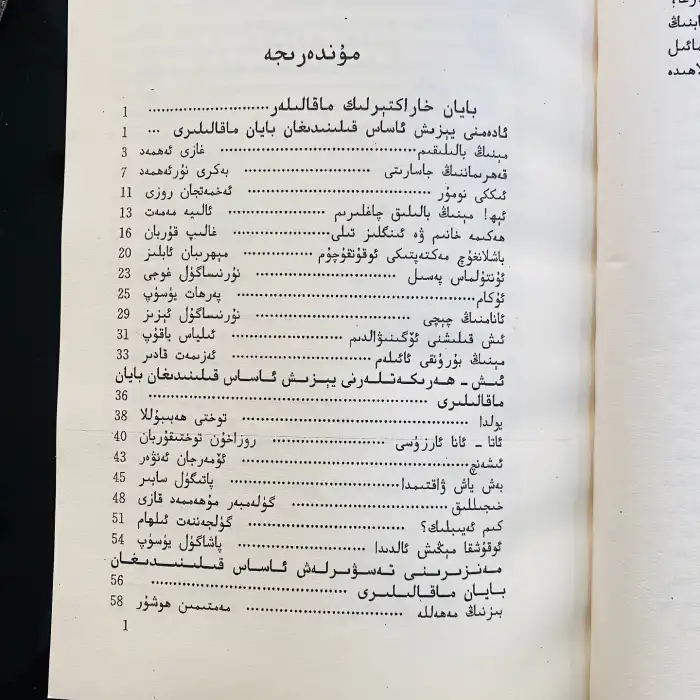 مۇندەرىجە
بايان خاراكتېرلىك ماقالىلەر ........................... 1
ئادەمنى يېزىش ئاساس قىلىنىدىغان بايان ماقالىلىرى ... 1
مېنىڭ بالىلىقىم ........................ غازى ئەھمەد 3
قەھرىماننىڭ جاسارىتى ........................ بەكرى نۇرئەھمەد 7
ئىككى نومۇر ........................ ئەخمەتجان روزى 11
ئېھ! مېنىڭ بالىلىق چاغلىرىم ............... ئالىيە مەمەت 13
ھەكىمە خانىم ۋە ئىنگلىز تىلى ............... غالىپ قۇربان 16
باشلانغۇچ مەكتەپتىكى ئوقۇتقۇچۇم ............ مېھرىبان ئابلىز 20
ئۇنتۇلماس پەسىل ........................ نۇرنىساگۇل غوجى 23
ئۇكام .............................. پەرھات يۈسۈپ 25
ئانامنىڭ چېچى ........................ نۇرنىساگۇل ئېزىز 29
ئىش قىلىشنى ئۆگىنىۋالدىم ............... ئىلياس ياقۇپ 31
مېنىڭ بۇرۇنقى ئائىلەم ........................ ئەزىمەت قادىر 33
ئىش - ھەرىكەتلەرنى يېزىش ئاساس قىلىنىدىغان بايان
ماقالىلىرى .............................. 36
يولدا .............................. توختى ھەبىبۇللا 38
ئاتا - ئانا ئارزۇسى ............... روزاخۇن توختىقۇربان 40
ئىشەنچ .............................. ئۆمەرجان ئەنۋەر 43
بەش ياش ۋاقتىمدا ........................ پاتىگۈل سابىر 45
خىجىللىق ........................ گۈلەمبەر مۇھەممەد قازى 48
كىم ئەيىبلىك؟ ........................ گۈلجەننەت ئىلھام 51
ئوقۇشقا مېڭىش ئالدىدا ............... پاشاگۈل يۈسۈپ 54
مەنزىرىنى تەسۋىرلەش ئاساس قىلىنىدىغان
بايان ماقالىلىرى .............................. 56
بىزنىڭ مەھەللە ........................ مەمتىمىن ھوشۇر 58
1